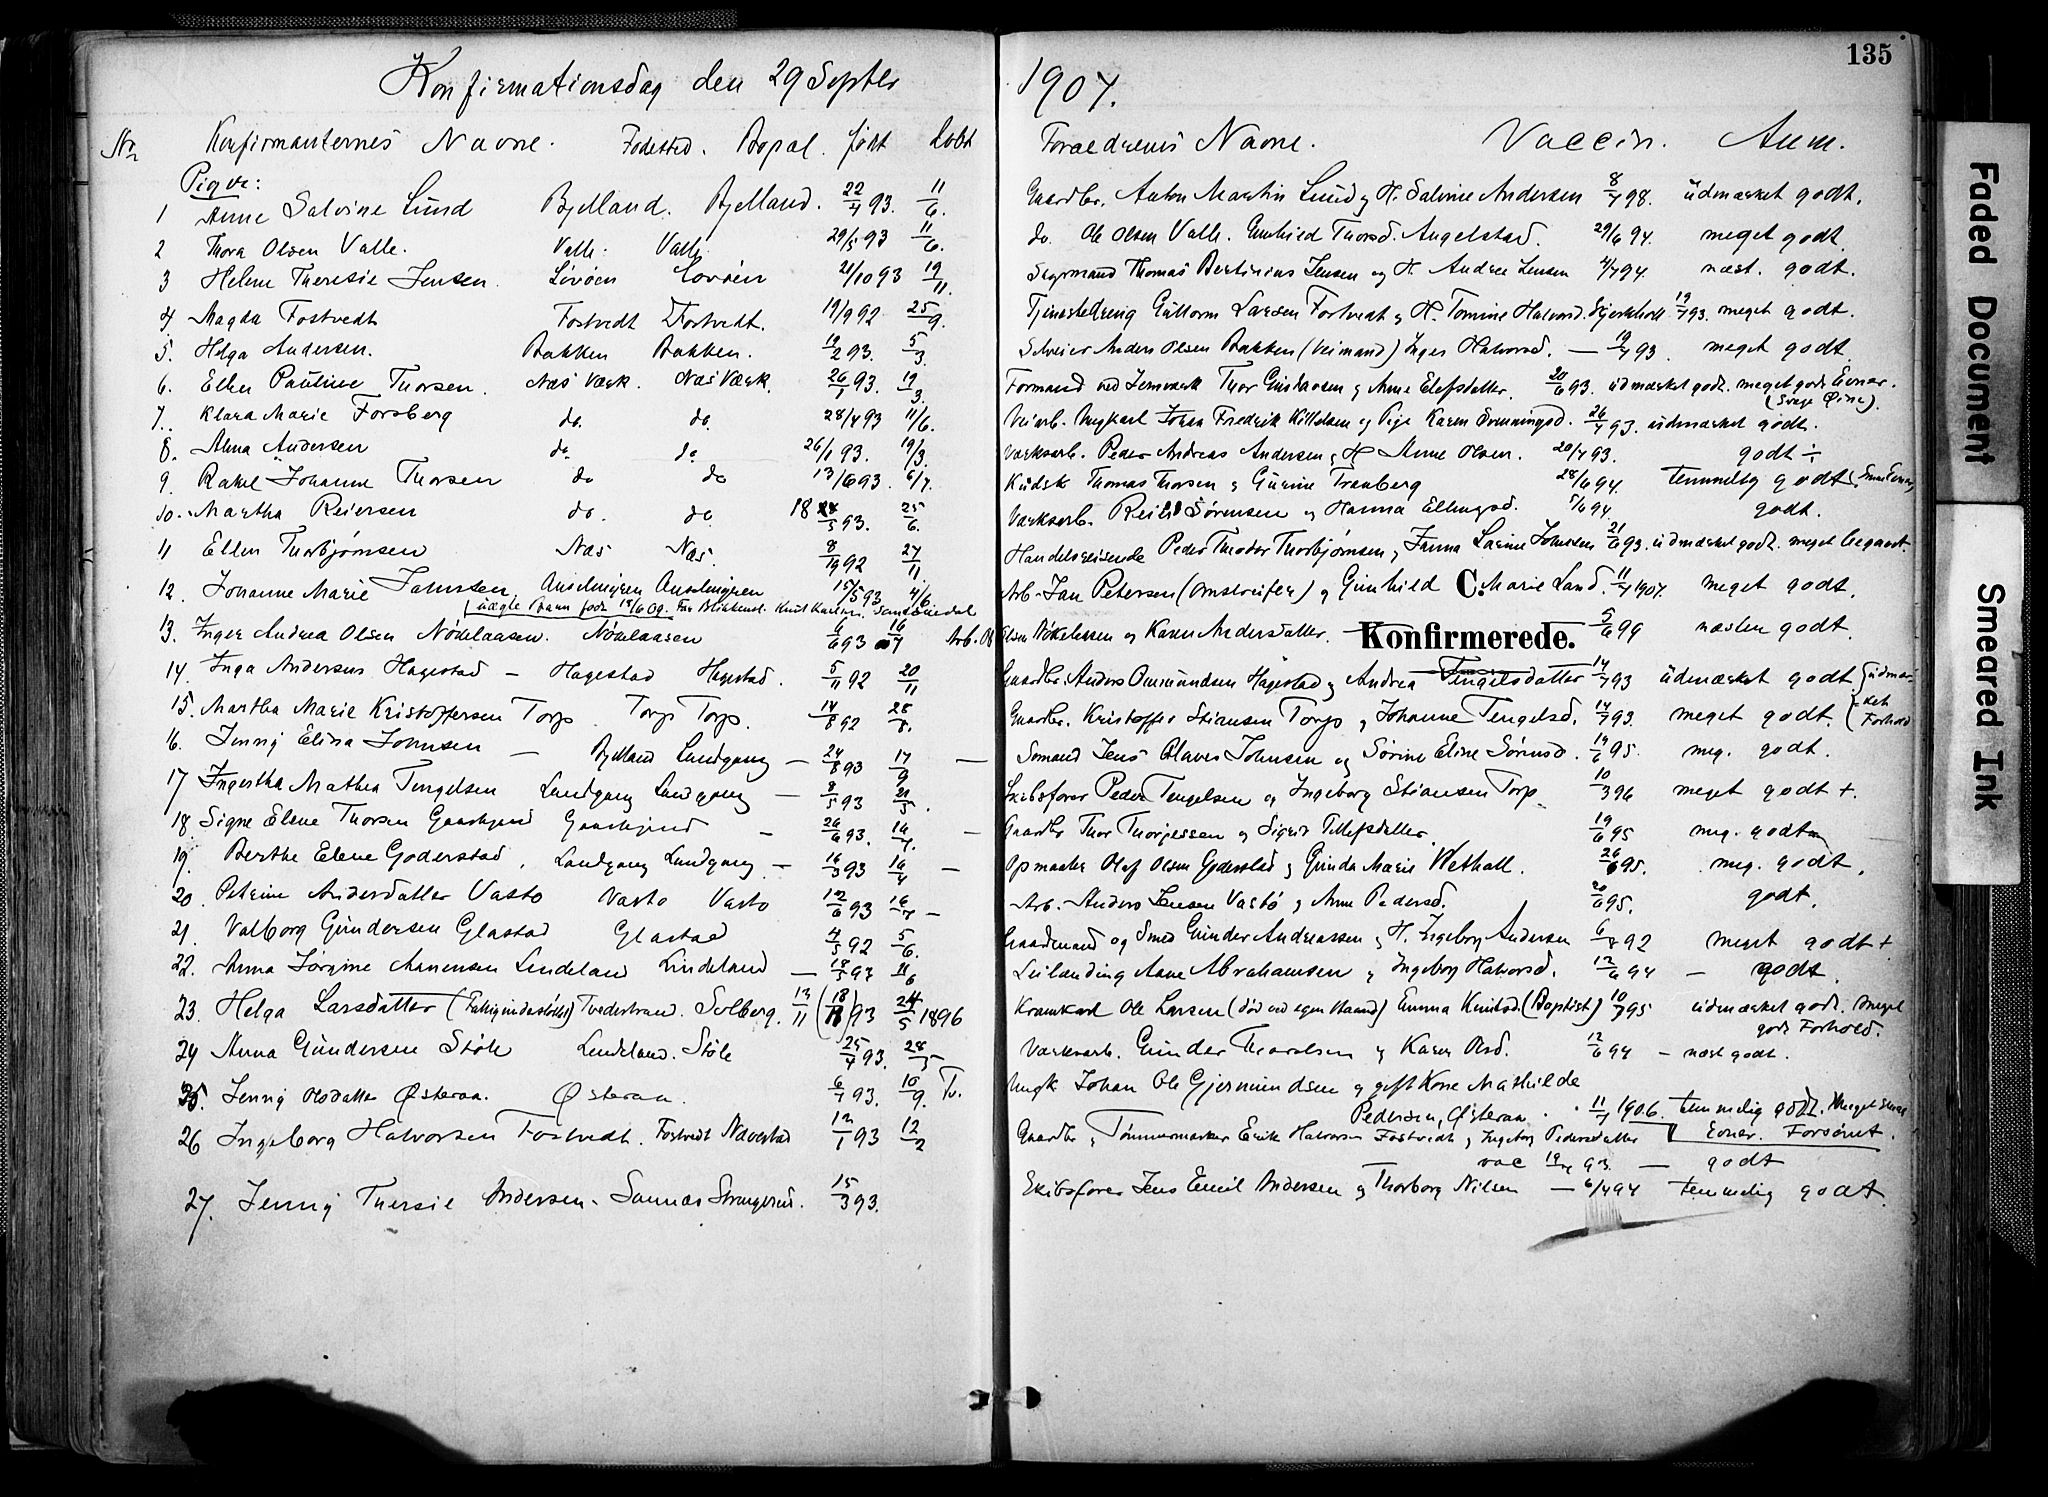 135
Konfirmationsdag den 29 Septbr 1907.
No Konfirmanternes Navne. Fødested. Bopæl. født døbt Forældrenes Navne. Vaccin. Anm.
Piger:
1 Anne Salvine Lund Bjelland. Bjelland. 22/4 93. 11/6. Gaardbr. Anton Martin Lund og H. Salvine Andersen 8/7 98. udmærket godt.
2 Thora Olsen Valle. Valle. Valle. 29/5 93 11/6. do. Ole Olsen Valle. Gunhild Thorsd. Angelstad. 29/6 94. meget godt.
3 Helene Theresie Jensen. Lövöen Lovöen 21/10 93 19/11. Thomas Bertinius Jensen og H. Andrea Jensen 4/7 94. næst. godt.
4 Magda Fostvedt Fostvedt Fostvedt. 19/9 92 25/9. Guttorm Larsen Fostvedt og H. Tomine Halvord. 19/7 93. meget godt.
5. Helga Andersen. Bakken Bakken. 19/2 93. 5/3. Anders Olsen Bakken (Veimand) Inger Halvorsd. — 19/7 93. meget godt.
6. Ellen Pauline Thorsen. Næs Værk. Næs Værk. 26/1 93. 19/3. Formand ved Jernværk Thor Gustavsen og Anne Elefsdatter. 20/6 93. udmærket godt. meget gode Evner. (Svage Øine).
7. Klara Marie Forsberg do. do. 28/4 93 11/6. Ungkarl Johan Fredrik Killelsen og Pige Karen Svenningsd. 26/7 93. udmærket godt.
8. Alma Andersen do do 26/1 93. 19/3. Værksarb. Peder Andreas Andersen og H Anne Olsen. 20/7 93. godt ÷
9. Rakel Johanne Thorsen do do 13/6 93. 6/7. Kudsk Thomas Thorsen og Gurine Tranberg 28/6 94. temmelig godt
10. Martha Reiersen do. do 18 /5 93. 25/6. Værksarb. Sørensen og Hanna Ellingsd. 5/6 94. godt.
11 Ellen Thorbjørnsen Næs Næs. 8/10 92 27/11 Handelsreisende Peder Theodor Thorbjørnsen og Janna Larine Johnsen 21/6 93. udmærket godt. meget begavet.
12. Johanne Marie Jahnsen 15/5 93 4/6 Arb. Jan Petersen (Omstreifer) og Gunhild C. Marie Lund. 11/7 1907. meget godt.
13. Inger Andrea Olsen Nödelaasen. Nödelaasen 6/6 93 16/7 Arb. Ole Olsen og Karen Andersdatter. 5/6 99 næsten godt.
Konfirmerede.
14. Inga Andersens Hagestad – Hagestad Hagestad. 5/11 92 20/11 Gaardbr. Anders Ommundsen Hagestad og Andrea Tengelsdatter 14/7 93 udmærket godt (udmærket Forhold
15. Martha Marie Kristoffersen Torp. Torp Torp. 14/8 92 28/8. Gaardbr. Kristoffer Stiansen Torp og Johanne Tengelsd. 14/7 93. meget godt.
16. Jenny Elina Johnsen — Bjelland Landgang — 24/8 93 17/9 — Sömand Jens Olaves Johnsen og Sörine Eline Sörensd. 19/6 95. meg. godt.
17 Ingertha Mathea Tengelsen Landgang Landgang — 8/5 93 21/5. Skibsfører Peder Tengelsen og Ingeborg Stiansen Torp. 10/3 96 meget godt +.
18. Signe Elene Thorsen Gaaskjend Gaaskjend – 26/6 93. 16/7. – Gaardbr Thor Thorjessen og Sigrid Tellefsdatter. 19/6 95 meg. godt
19. Berthe Elene Goderstad. Landgang Landgang — 16/3 93 16/4 — Opmaaler Olaf Olsen Goderstad og Gunda Marie Wethall. 26/6 95. meg. godt.
20. Petrine Andersdatter Vastö Vastö Vastö 12/6 93 16/7 – Arb. Anders Jensen Vastö og Anne Pedersd. 20/6 95. godt.
21. Valborg Gundersen Glastad Glastad 4/5 92 5/6. Gaardmand og Smed Gunder Andreassen og H. Ingeborg Andersen 6/7 92 meget godt +
22. Anna Jörgine Aanensen Lindeland Lindeland — 18/5 93 11/6 Leilænding Aane Abrahamsen og Ingeborg Halvorsd. 12/6 94 — godt.
23. Helga Larsdatter Tvedestrand. Solberg. 13/11 (18/11) 93 24/5 1896 Kramkarl Ole Larsen (död ved egen Haand) Emma Knutsd. (Baptist) 10/7 95 udmærket godt. meget godt Forhold.
24 Anna Gundersen Støle Lindeland. Støle 25/4 93. 28/5 Værksarb. Gunder Tharalsen og Karen Olsd. 12/6 94 – næst godt.
25. Jenny Olsdatter Østeraa. Østeraa. 6/7 93. 10/9. Tv. Ungk Johan Ole Gjermundsen og gift Kone Mathilde
Pedersen, Østeraa. 11/7 1906. temmelig godt. Meget Evner. Forsömt.
26 Ingeborg Halvorsen Fostvedt. Fostvedt Næverstad 12/1 93 12/2 Gaardbr og Tømmermærker Eerik Halvorsen Fostvedt og Ingeborg Pedersdatter
vac 19/7 93. — godt
27. Jenny Theresie Andersen. 15/3 93. Skibsfører Jens Emil Andersen og Thorborg Nilsen — 6/7 94 temmelig godt.
Faded Document
Smeared Ink